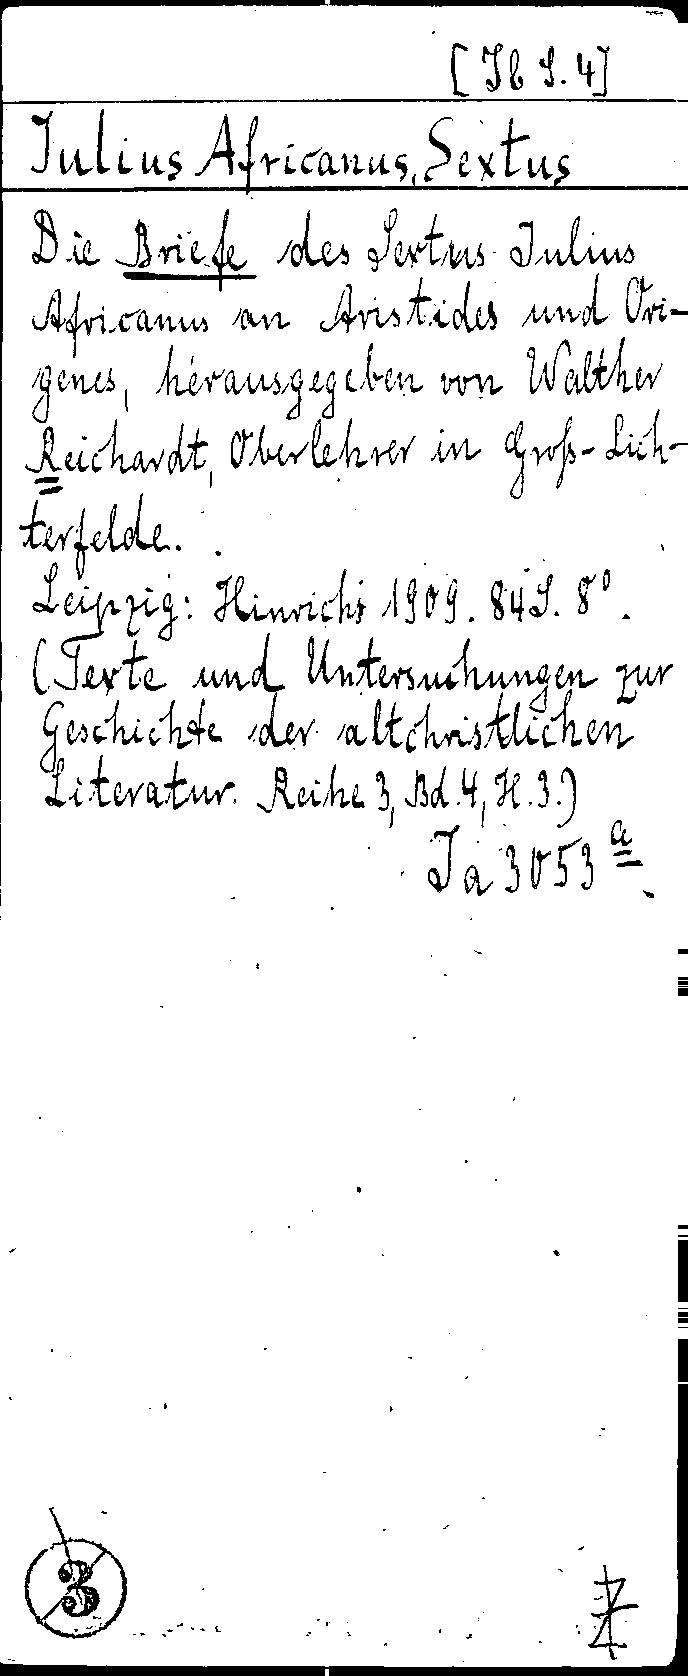 [Ib S. 4]
Julius Africanus, Sextus
Die Briefe des Sextus Julius
Africanus an Aristides und Ori-
genes, herausgegeben von Walther
Reichardt, Oberlehrer in Groß-Lich-
terfelde.
Leipzig: Hinrichs 1909. 84 S. 8°.
(Texte und Untersuchungen zur
Geschichte der altchristlichen
Literatur. Reihe 3, Bd. 4, H. 3.)
Ia 3053 a
3